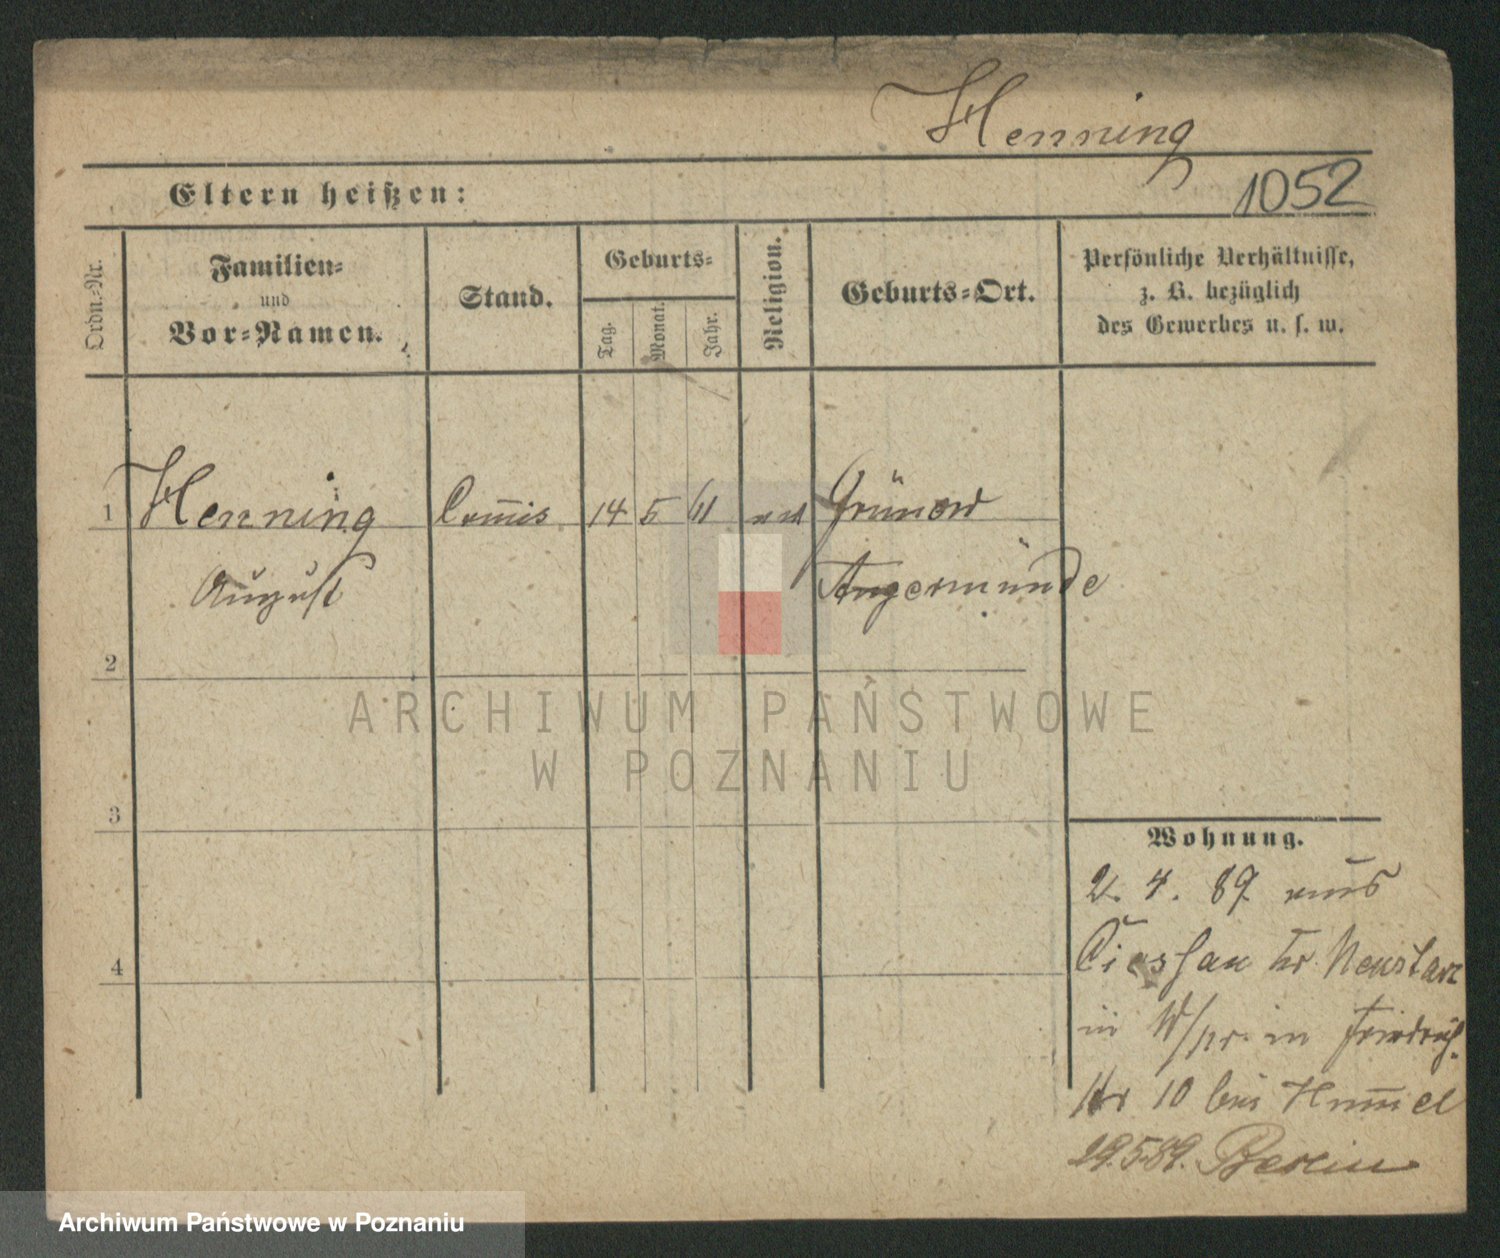 Henning
1052
Eltern heißen:
Ordn.-Nr.
Familien-
und
Vor-Namen.
Stand.
Geburts-
Tag.
Monat.
Jahr.
Religion.
Geburts-Ort.
Persönliche Verhältnisse,
z. B. bezüglich
des Gewerbes u. s. w.
1 Henning Com̅is 14 5 Grünow
August Angermünde
2
3
4
Wohnung.
2. 4. 89 aus
Neustar
in W/pr. in Friedrich
10 bei
29.5.89. Berlin
ARCHIWUM PAŃSTWOWE
W POZNANIU
Archiwum Państwowe w Poznaniu